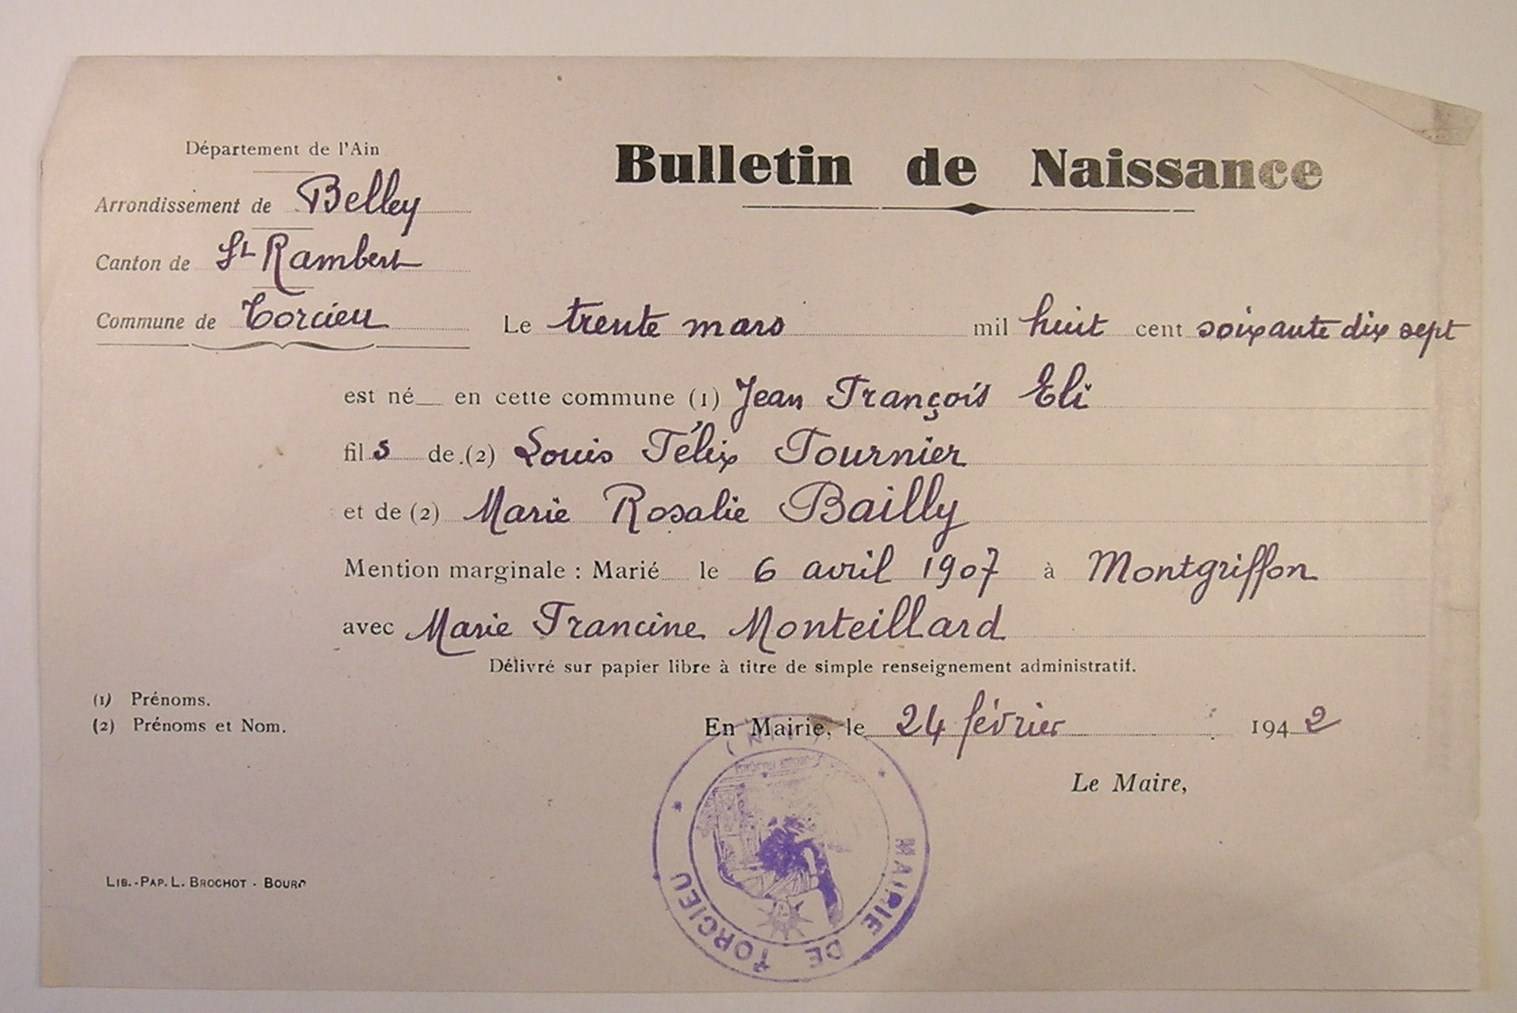 Département de l'Ain
Bulletin de Naissance
Arrondissement de Belley
Canton de St Rambert
Commune de Torcieu
Le trente mars mil huit cent soixante dix sept
est né en cette commune (1) Jean François Eli
fils de (2) Louis Félix Tournier
et de (2) Marie Rosalie Bailly
Mention marginale : Marié le 6 avril 1907 à Montgriffon
avec Marie Francine Monteillard
Délivré sur papier libre à titre de simple renseignement administratif.
(1) Prénoms.
(2) Prénoms et Nom.
En Mairie, le 24 février 1942
Le Maire,
MAIRIE DE TORCIEU
(AIN)
LIB.-PAP. L. BROCHOT - BOURG